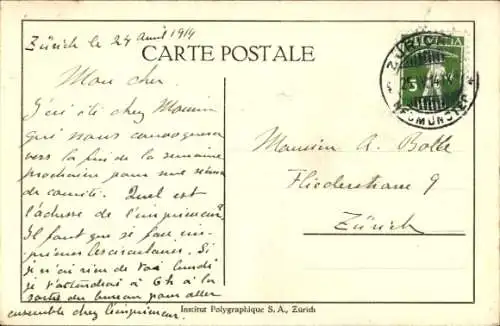 Zürich le 24 avril 1914
CARTE POSTALE
ZÜRICH
NEUMÜNSTER
HELVETIA
5
Mon cher
J'ai été chez
qui nous convoquera
vers la fin de la semaine
prochaine pour une séance
de comité. Quel est
l'adresse de l'imprimeur?
Il faut que je fasse im-
primer les circulaires. Si
je n'ai rien de toi lundi
je t'attendrai à 6h à la
sortie du bureau pour aller
ensemble chez l'imprimeur.
Monsieur A. Bolle
Fliederstrasse 9
Zürich
Institut Polygraphique S. A., Zürich